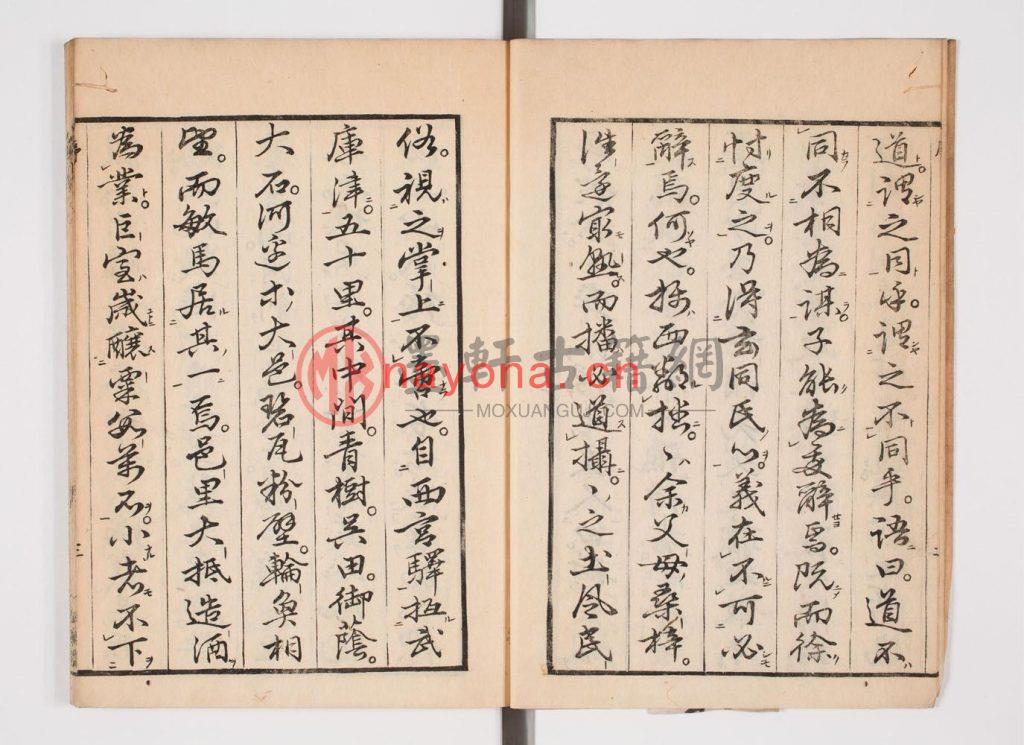 道。謂之同乎。謂之不同乎。語曰。道不
同不相為謀。子能為委辭焉。既而徐
忖度之。乃得玄同氏心。義在不可必
辭焉。何也。攝西鄙拙、余父母桑梓。
遂最熟。而播必道攝、之土風民
俗。視之掌上不啻也。自西宮驛抵武
庫津。五十里。其中間。青樹。呉田。御蔭。
大石。河邊。大邑。瓦粉壁。輪奐相
望。而敏馬居其一焉。邑里大抵造酒
為業。巨室歲釀粟萬石。小者不下
墨軒古籍網
nayona.cn
MOXUANGUJI.COM